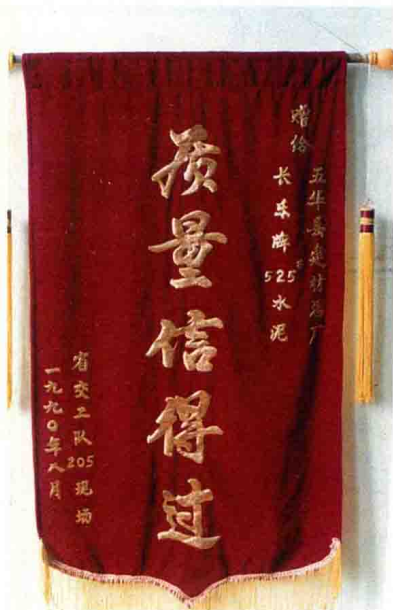 赠给
五华县建材总厂
长乐牌525#水泥
质量信得过
省交工队205现场
一九九〇年八月